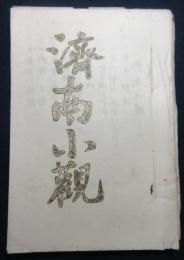 濟南小觀